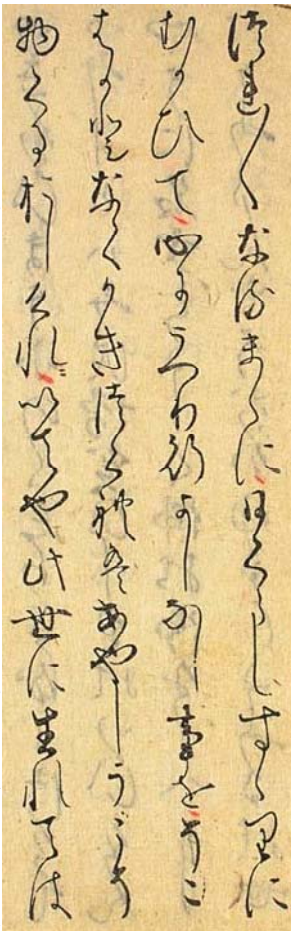 つれ〱なるまゝに日くらしすゝりに
むかひて心にうつり行よしなし事をそこ
はかとなくかきつくれはあやしうこそ
物くるおしけれいてや此世に生れては